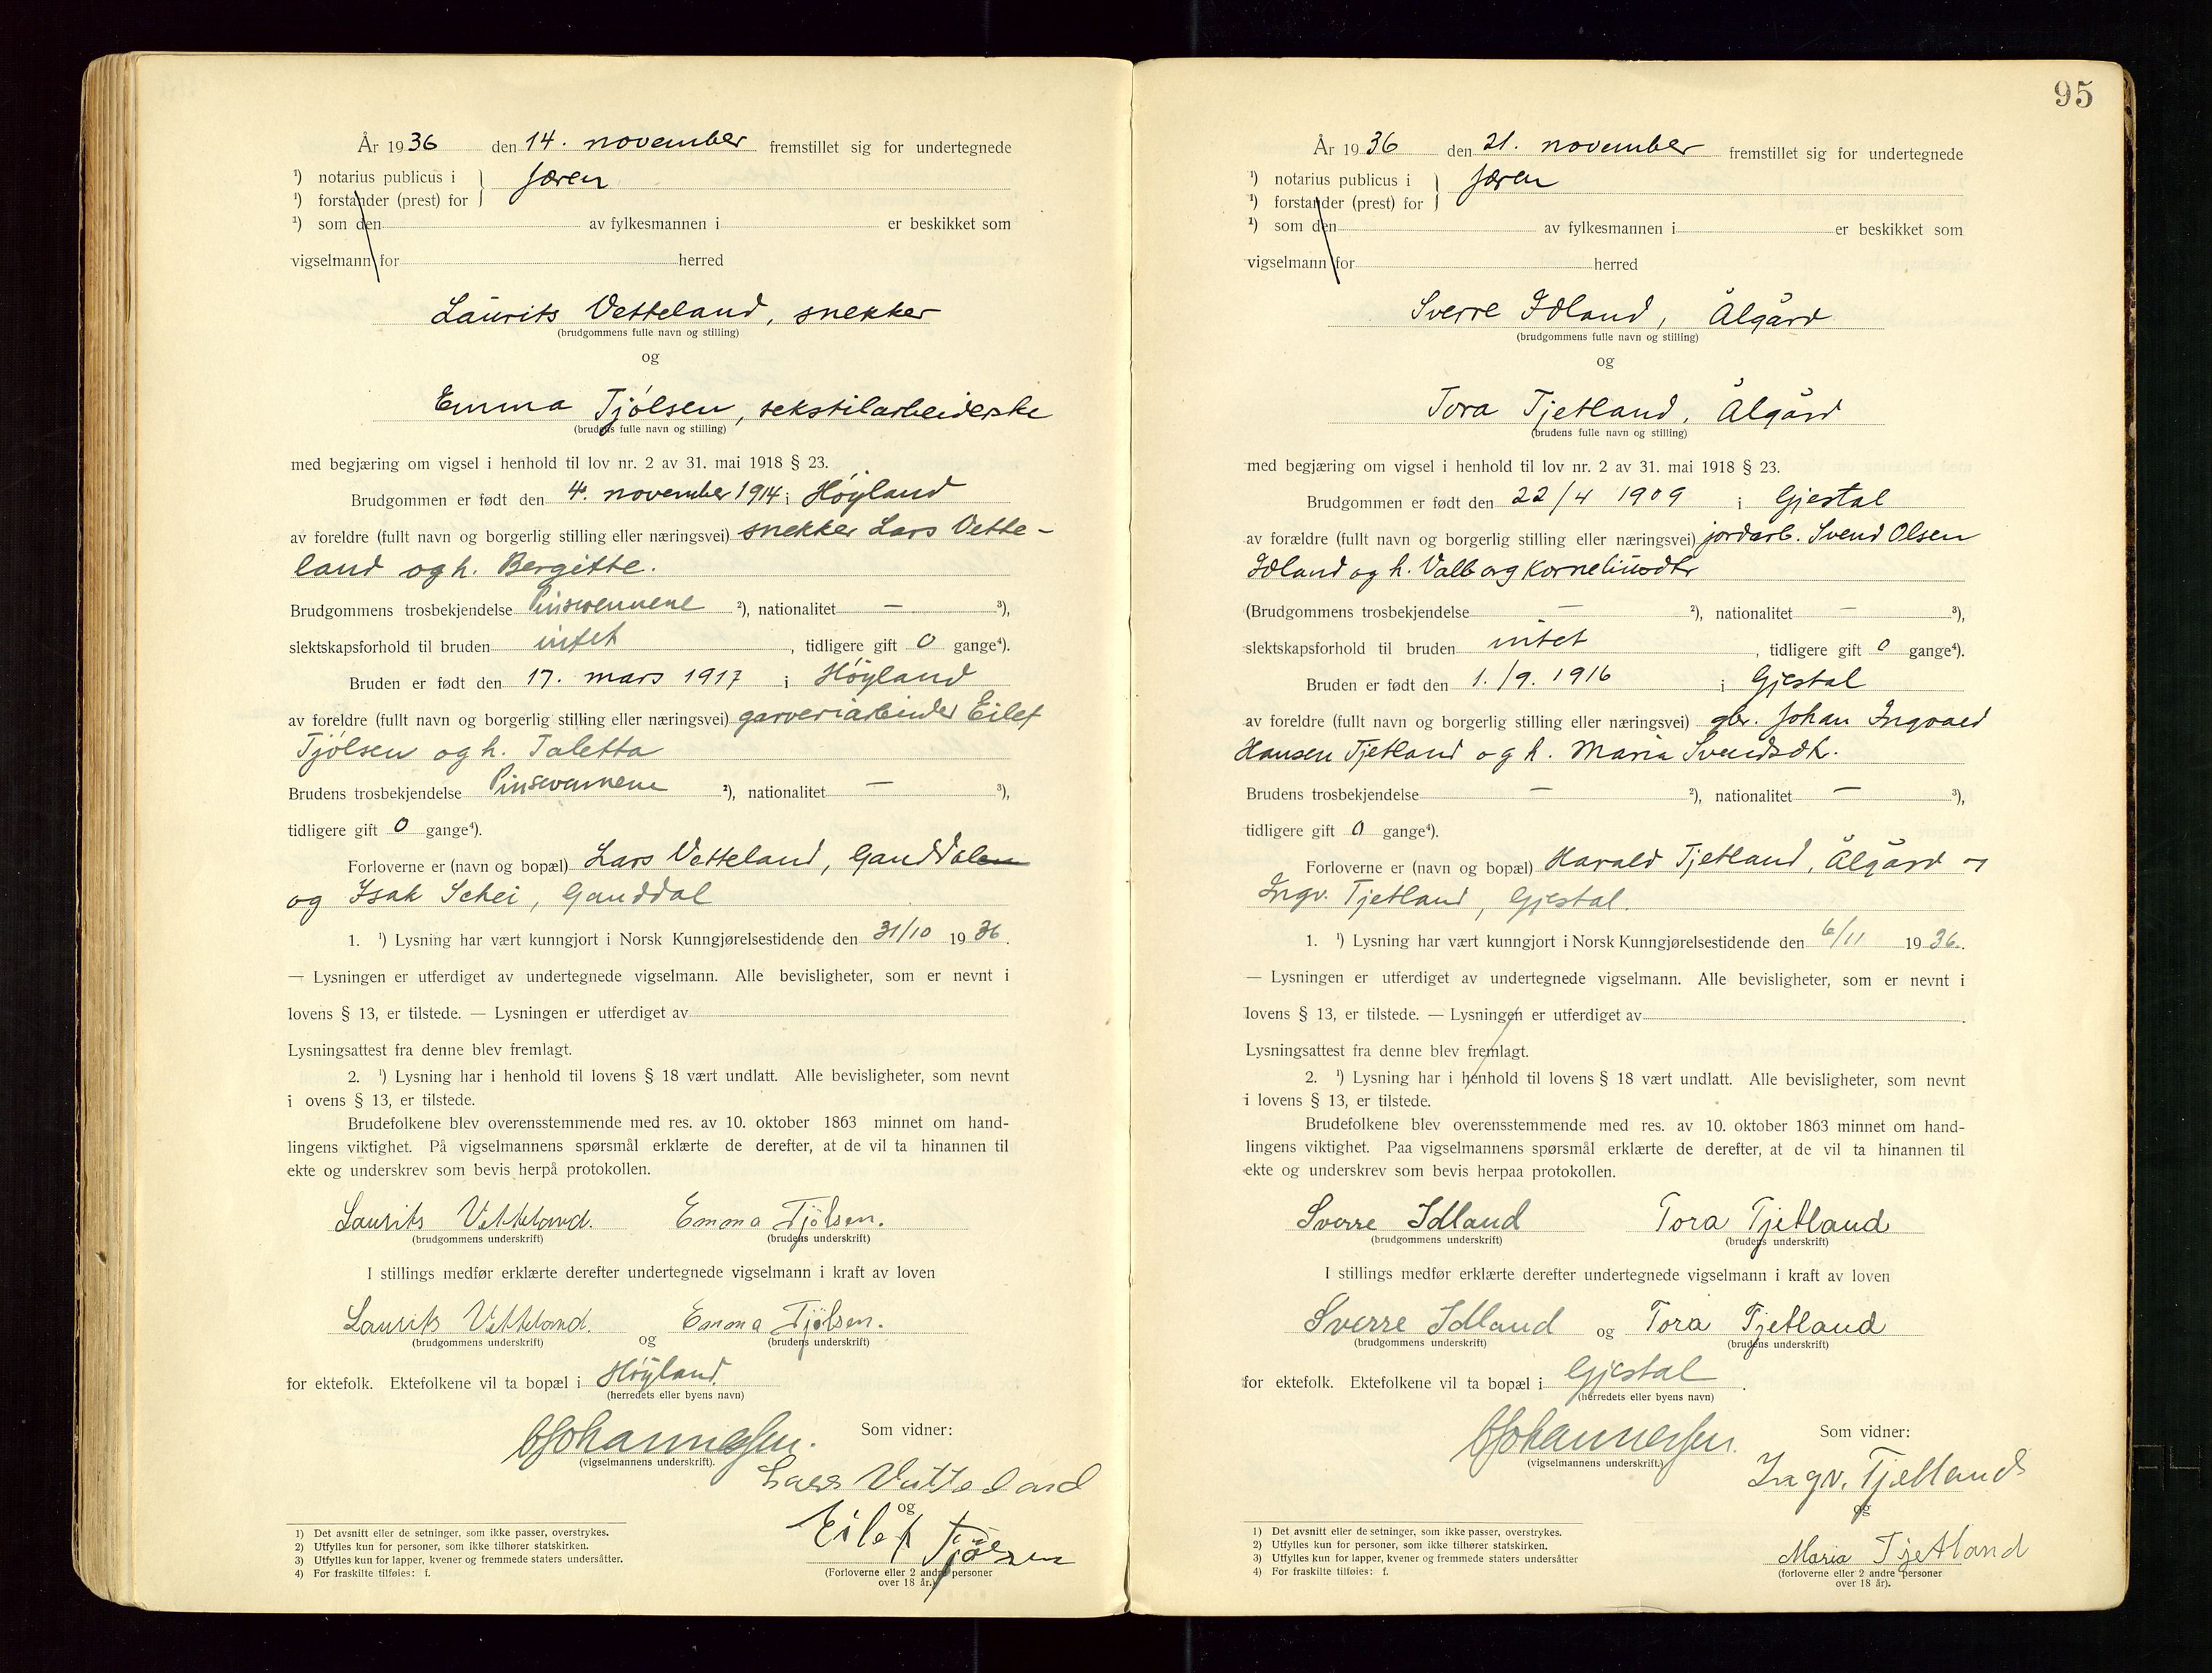 År 1936 den 14. november fremstillet sig for undertegnede
¹) notarius publicus i } Jæren
¹) forstander (prest) for
¹) som den av fylkesmannen i er beskikket som
vigselmann for herred
Laurits Vetteland, snekker
(brudgommens fulle navn og stilling)
og
Emma Tjølsen, tekstilarbeiderske
(brudens fulle navn og stilling)
med begjæring om vigsel i henhold til lov nr. 2 av 31. mai 1918 § 23.
Brudgommen er født den 4. november 1914 i Høyland
av foreldre (fullt navn og borgerlig stilling eller næringsvei) snekker Lars Vette-
land og h. Bergitte.
Brudgommens trosbekjendelse Pinsevennene ²), nationalitet — ³),
slektskapsforhold til bruden intet, tidligere gift 0 gange⁴).
Bruden er født den 17. mars 1917 i Høyland
av foreldre (fullt navn og borgerlig stilling eller næringsvei) garveriarbeider Eilef
Tjølsen og h. Taletta
Brudens trosbekjendelse Pinsevennene ²), nationalitet — ³),
tidligere gift 0 gange⁴).
Forloverne er (navn og bopæl) Lars Vetteland, Ganddalen
og Isak Schei, Ganddal
1. ¹) Lysning har vært kunngjort i Norsk Kunngjørelsestidende den 31/10 1936.
— Lysningen er utferdiget av undertegnede vigselmann. Alle bevisligheter, som er nevnt i
lovens § 13, er tilstede. — Lysningen er utferdiget av
Lysningsattest fra denne blev fremlagt.
2. ¹) Lysning har i henhold til lovens § 18 vært undlatt. Alle bevisligheter, som nevnt
i ovens § 13, er tilstede.
Brudefolkene blev overensstemmende med res. av 10. oktober 1863 minnet om hand-
lingens viktighet. På vigselmannens spørsmål erklærte de derefter, at de vil ta hinannen til
ekte og underskrev som bevis herpå protokollen.
Laurits Vetteland. Emma Tjølsen.
(brudgommens underskrift) (brudens underskrift)
I stillings medfør erklærte derefter undertegnede vigselmann i kraft av loven
Laurits Vetteland. og Emma Tjølsen.
(brudgommens underskrift) (brudens underskrift)
for ektefolk. Ektefolkene vil ta bopæl i Høyland.
(herredets eller byens navn)
Johannessen. Som vidner:
(vigselmannens underskrift).
Lars Vetteland
og
Eilef Tjølsen
(Forloverne eller 2 andre personer
over 18 år.)
1) Det avsnitt eller de setninger, som ikke passer, overstrykes.
2) Utfylles kun for personer, som ikke tilhører statskirken.
3) Utfylles kun for lapper, kvener og fremmede staters undersåtter.
4) For fraskilte tilføies: f.
95
År 1936 den 21. november fremstillet sig for undertegnede
¹) notarius publicus i } Jæren
¹) forstander (prest) for
¹) som den av fylkesmannen i er beskikket som
vigselmann for herred
Sverre Idland, Ålgård
(brudgommens fulle navn og stilling)
og
Tora Tjetland, Ålgård
(brudens fulle navn og stilling)
med begjæring om vigsel i henhold til lov nr. 2 av 31. mai 1918 § 23.
Brudgommen er født den 22/4 1909 i Gjestal
av forældre (fullt navn og borgerlig stilling eller næringsvei) jordarb. Svend Olsen
Idland og h. Valborg Korneliusdtr
(Brudgommens trosbekjendelse — ²), nationalitet — ³),
slektskapsforhold til bruden intet, tidligere gift 0 gange⁴).
Bruden er født den 1./9. 1916 i Gjestal
av foreldre (fullt navn og borgerlig stilling eller næringsvei) gbr. Johan Ingvald
Hansen Tjetland og h. Maria Svendsdt.
Brudens trosbekjendelse — ²), nationalitet — ³),
tidligere gift 0 gange⁴).
Forloverne er (navn og bopæl) Harald Tjetland, Ålgård og
Ingv. Tjetland, Gjestal.
1. ¹) Lysning har vært kunngjort i Norsk Kunngjørelsestidende den 6/11 1936.
— Lysningen er utferdiget av undertegnede vigselmann. Alle bevisligheter, som er nevnt i
lovens § 13, er tilstede. — Lysningen er utferdiget av .
Lysningsattest fra denne blev fremlagt.
2. ¹) Lysning har i henhold til lovens § 18 vært undlatt. Alle bevisligheter, som nevnt
i lovens § 13, er tilstede.
Brudefolkene blev overensstemmende med res. av 10. oktober 1863 minnet om hand-
lingens viktighet. Paa vigselmannens spørsmål erklærte de derefter, at de vil ta hinannen til
ekte og underskrev som bevis herpaa protokollen.
Sverre Idland Tora Tjetland
(brudgommens underskrift) (brudens underskrift)
I stillings medfør erklærte derefter undertegnede vigselmann i kraft av loven
Sverre Idland og Tora Tjetland
(brudgommens underskrift) (brudens underskrift)
for ektefolk. Ektefolkene vil ta bopæl i Gjestal.
(herredets eller byens navn)
Johannessen. Som vidner:
(vigselmannens underskrift.)
Ingv. Tjetland
og
Maria Tjetland
(forloverne eller 2 andre personer
over 18 år).
1) Det avsnitt eller de setninger, som ikke passer, overstrykes.
2) Utfylles kun for personer, som ikke tilhører statskirken.
3) Utfylles kun for lapper, kvener og fremmede staters undersåtter
4) For fraskilte tilføies: f.